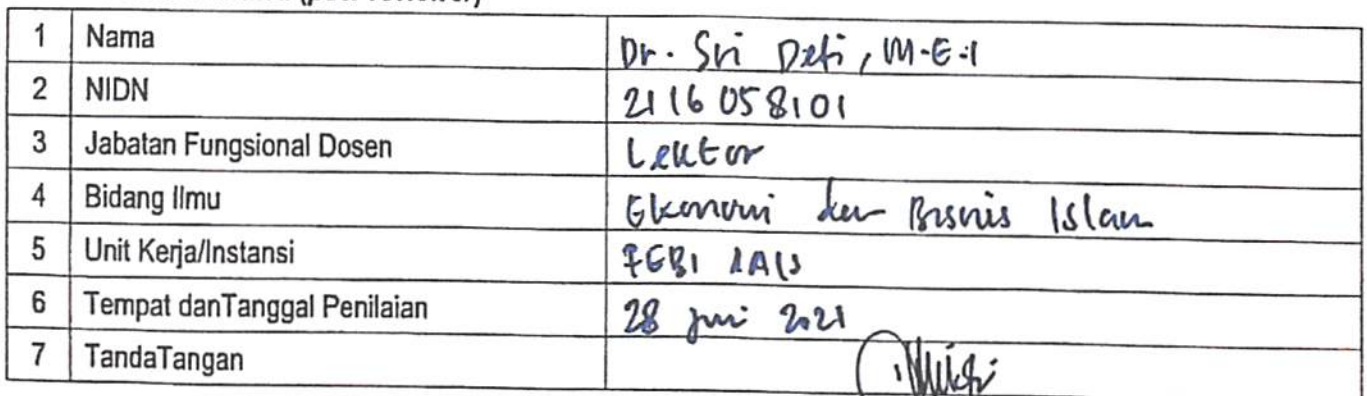 (peer reviewer)
1 Nama Dr. Sri Deti, M.E.I
2 NIDN 2116058101
3 Jabatan Fungsional Dosen Lektor
4 Bidang Ilmu Ekonomi dan Bisnis Islam
5 Unit Kerja/Instansi FEBI IAIS
6 Tempat danTanggal Penilaian 28 Juni 2021
7 TandaTangan